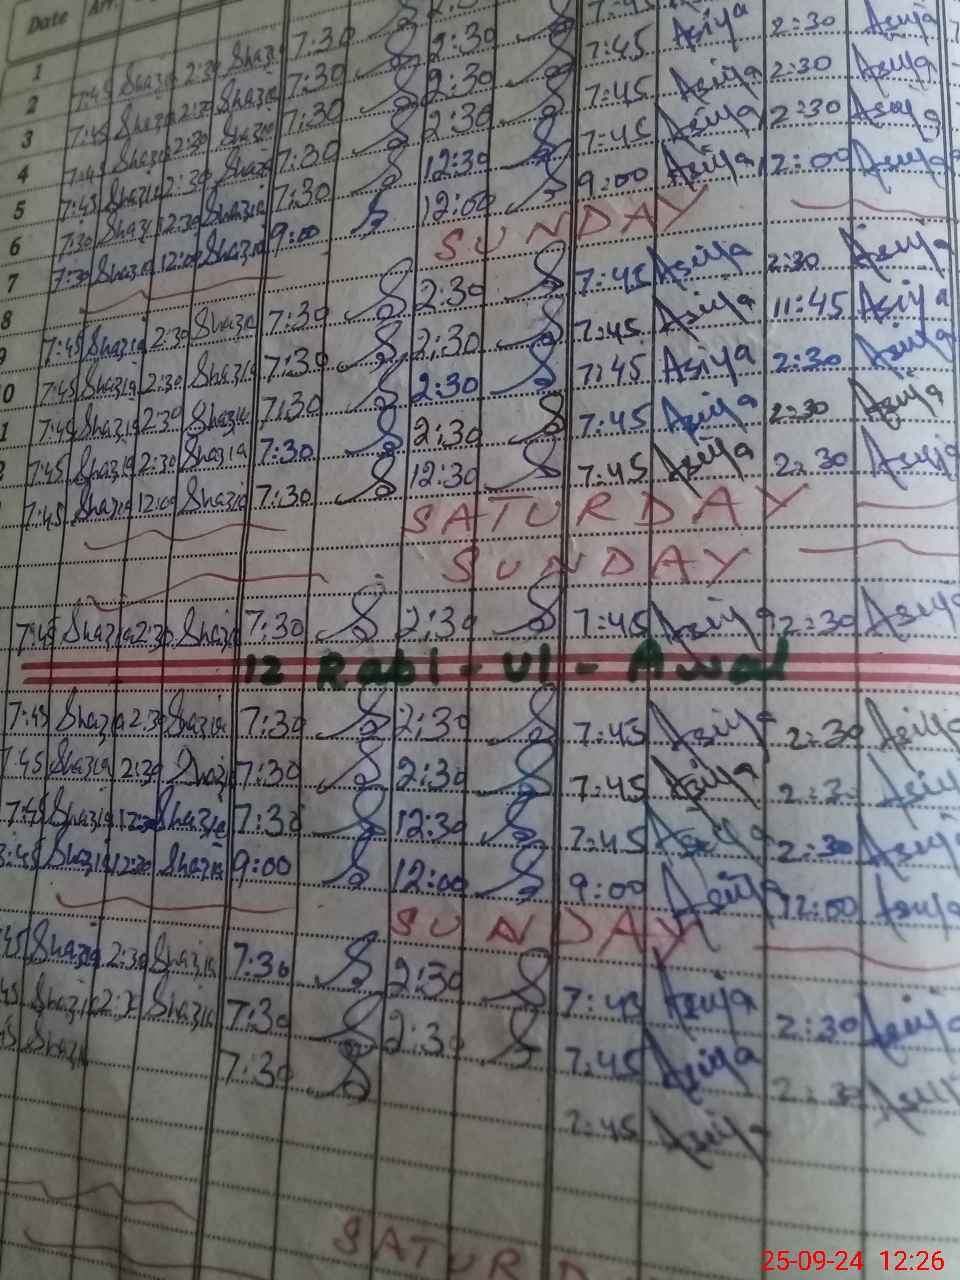 Date Arr.
1 7:45 Shazia 2:30 Shazia 7:30 2:30 7:45 Asiya 2:30 Asiya
2 7:45 Shazia 2:30 Shazia 7:30 2:30 7:45 Asiya 2:30 Asiya
3 7:45 Shazia 2:30 Shazia 7:30 2:30 7:45 Asiya 2:30 Asiya
4 7:45 Shazia 2:30 Shazia 7:30 12:30 7:45 Asiya 12:00 Asiya
5 7:30 12:00 9:00 Asiya
6 7:30 Shazia 12:30 Shazia 9:00
7 7:30 Shazia 12:00 Shazia SUNDAY
8 7:30 2:30 7:45 Asiya 2:30 Asiya
7:45 Shazia 2:30 Shazia 7:30 2:30 7:45 Asiya 11:45 Asiya
0 7:45 Shazia 2:30 Shazia 7:30 2:30 7:45 Asiya 2:30 Asiya
1 7:45 Shazia 2:30 Shazia 7:30 2:30 7:45 Asiya 2:30 Asiya
7:45 Shazia 2:30 Shazia 7:30 12:30 7:45 Asiya 2:30 Asiya
7:45 Shazia 12:00 Shazia
SATURDAY
SUNDAY
7:45 Shazia 2:30 Shazia 7:30 2:30 7:45 Asiya 2:30 Asiya
12 Rabi-Ul-Awal
7:45 Shazia 2:30 Shazia 7:30 2:30 7:45 Asiya 2:30 Asiya
7:45 Shazia 2:30 7:30 2:30 7:45 Asiya 2:30 Asiya
7:45 Shazia 12:30 Shazia 7:30 12:30 7:45 Asiya 2:30 Asiya
:45 Shazia 12:30 Shazia 9:00 12:00 9:00 Asiya 12:00 Asiya
SUNDAY
:45 Shazia 2:30 Shazia 7:30 2:30 7:45 Asiya 2:30 Asiya
45 Shazia 2:30 Shazia 7:30 2:30 7:45 Asiya 2:30 Asiya
45 Shazia 7:30 7:45 Asiya
SATURD
25-09-24 12:26